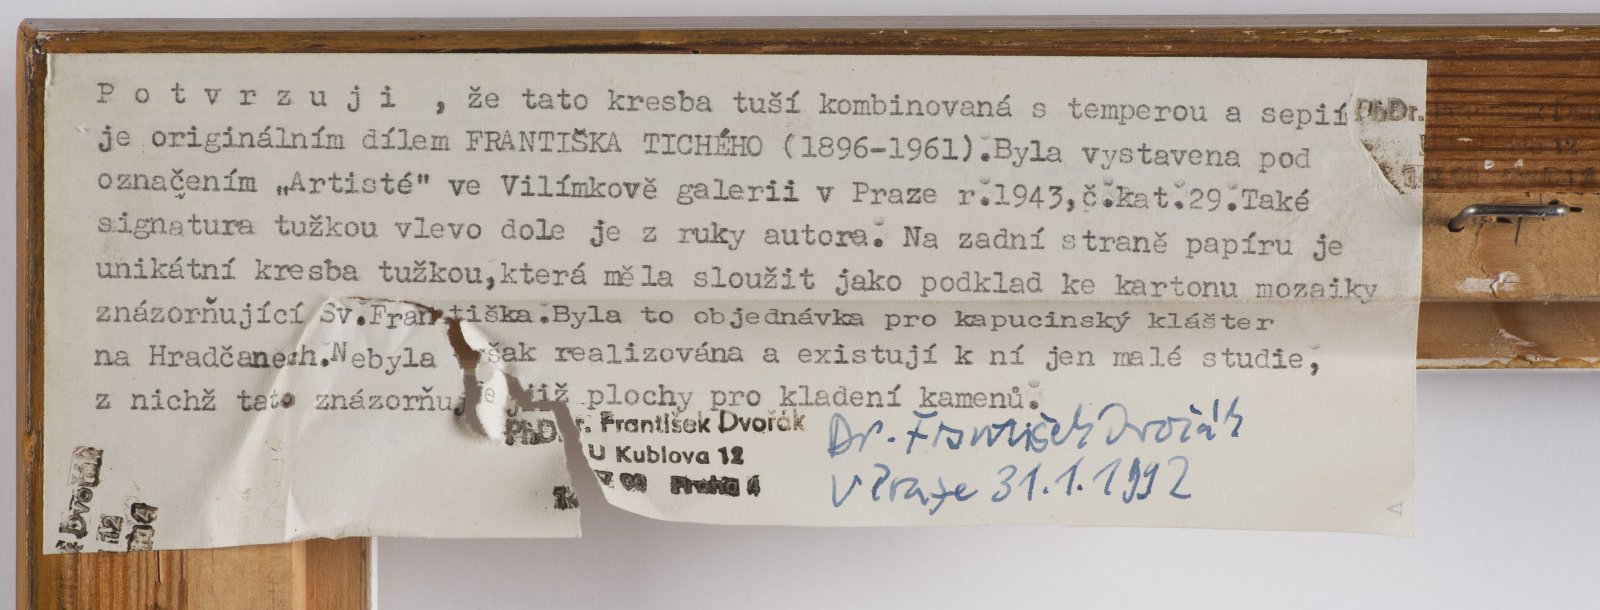 P o t v r z u j i , že tato kresba tuší kombinovaná s temperou a sepií PhDr.
je originálním dílem FRANTIŠKA TICHÉHO (1896-1961).Byla vystavena pod
označením „Artisté" ve Vilímkově galerii v Praze r.1943,č.kat.29.Také
signatura tužkou vlevo dole je z ruky autora. Na zadní straně papíru je
unikátní kresba tužkou,která měla sloužit jako podklad ke kartonu mozaiky
znázorňující Sv.Františka.Byla to objednávka pro kapucinský klášter
na Hradčanech.Nebyla však realizována a existují k ní jen malé studie,
z nichž tato znázorňuje jiiž plochy pro kladení kamenů.
PhDr. František Dvořák
U Kublova 12
00 Praha 4
Dr. František Dvořák
v Praze 31.1.1992
Dvořák
12